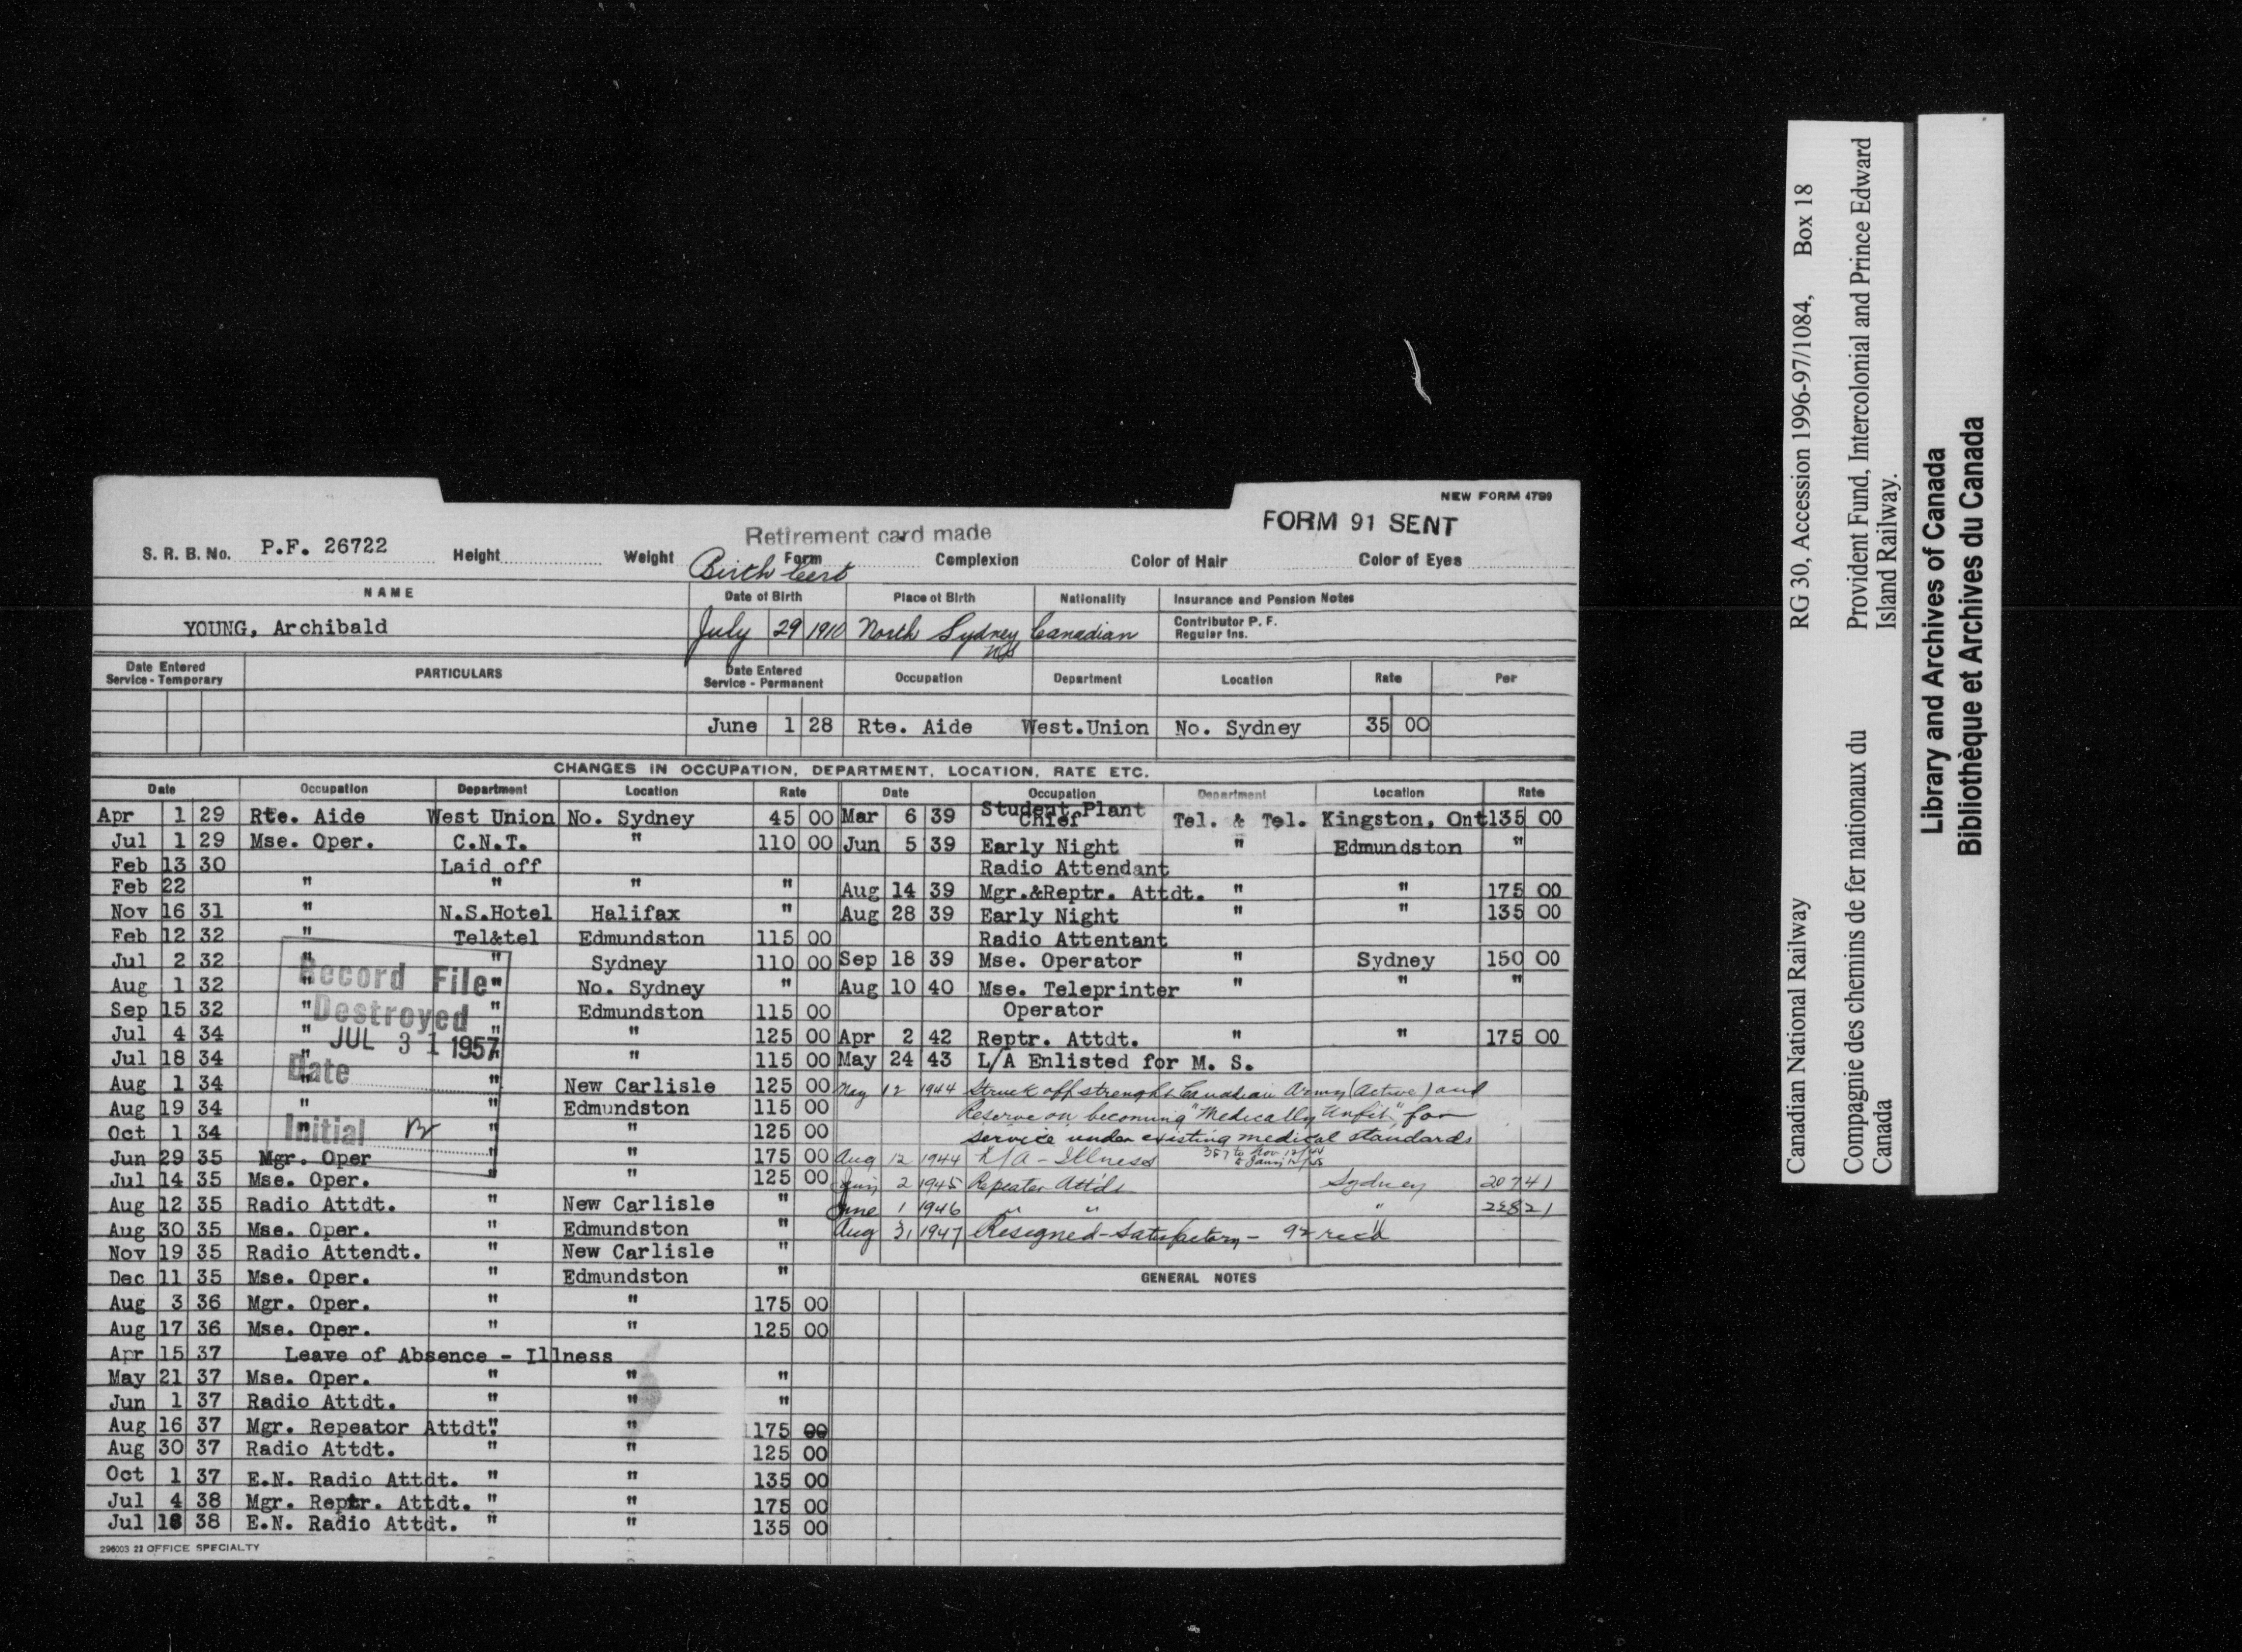 NEW FORM 4799
Retirement card made
FORM 91 SENT
S. R. B. No. P.F. 26722 Height Weight Form Complexion Color of Hair Color of Eyes
Birth Cert
NAME Date of Birth Place of Birth Nationality Insurance and Pension Notes
YOUNG, Archibald July 29 1910 North Sydney NS Canadian Contributor P. F.
Regular Ins.
Date Entered Service - Temporary PARTICULARS Date Entered Service - Permanent Occupation Department Location Rate Per
June 1 28 Rte. Aide West.Union No. Sydney 35 00
CHANGES IN OCCUPATION, DEPARTMENT, LOCATION, RATE ETC.
Date Occupation Department Location Rate
Apr 1 29 Rte. Aide West Union No. Sydney 45 00
Jul 1 29 Mse. Oper. C.N.T. " 110 00
Feb 13 30 Laid off
Feb 22 " " " "
Nov 16 31 " N.S.Hotel Halifax "
Feb 12 32 " Tel&tel Edmundston 115 00
Jul 2 32 " " Sydney 110 00
Aug 1 32 " " No. Sydney "
Sep 15 32 " " Edmundston 115 00
Jul 4 34 " " " 125 00
Jul 18 34 " " 115 00
Aug 1 34 " " New Carlisle 125 00
Aug 19 34 " " Edmundston 115 00
Oct 1 34 " " " 125 00
Jun 29 35 Mgr. Oper " " 175 00
Jul 14 35 Mse. Oper. " 125 00
Aug 12 35 Radio Attdt. " New Carlisle "
Aug 30 35 Mse. Oper. " Edmundston "
Nov 19 35 Radio Attendt. " New Carlisle "
Dec 11 35 Mse. Oper. " Edmundston "
Aug 3 36 Mgr. Oper. " " 175 00
Aug 17 36 Mse. Oper. " " 125 00
Apr 15 37 Leave of Absence - Illness
May 21 37 Mse. Oper. " " "
Jun 1 37 Radio Attdt. " " "
Aug 16 37 Mgr. Repeator Attdt. " " 175 00
Aug 30 37 Radio Attdt. " " 125 00
Oct 1 37 E.N. Radio Attdt. " " 135 00
Jul 4 38 Mgr. Reptr. Attdt. " " 175 00
Jul 18 38 E.N. Radio Attdt. " " 135 00
296003 22 OFFICE SPECIALTY
Record File
Destroyed
JUL 31 1957
Date
Initial
Date Occupation Department Location Rate
Mar 6 39 Student Plant Chief Tel. & Tel. Kingston, Ont 135 00
Jun 5 39 Early Night " Edmundston "
Radio Attendant
Aug 14 39 Mgr.&Reptr. Attdt. " " 175 00
Aug 28 39 Early Night " " 135 00
Radio Attentant
Sep 18 39 Mse. Operator " Sydney 150 00
Aug 10 40 Mse. Teleprinter " " "
Operator
Apr 2 42 Reptr. Attdt. " " 175 00
May 24 43 L/A Enlisted for M. S.
May 12 1944 Struck off strenght Canadian Army (Active) and
Reserve on becoming "Medically Unfit" for
service under existing medical standards
Aug 12 1944 L/A - Illness
2 1945 Repeater Attdt Sydney 207 41
June 1 1946 " " " 228 21
Aug 31 1947 Resigned - Satisfactory -
GENERAL NOTES
Canadian National Railway RG 30, Accession 1996-97/1084, Box 18
Compagnie des chemins de fer nationaux du Canada
Provident Fund, Intercolonial and Prince Edward Island Railway.
Library and Archives of Canada
Bibliothèque et Archives du Canada